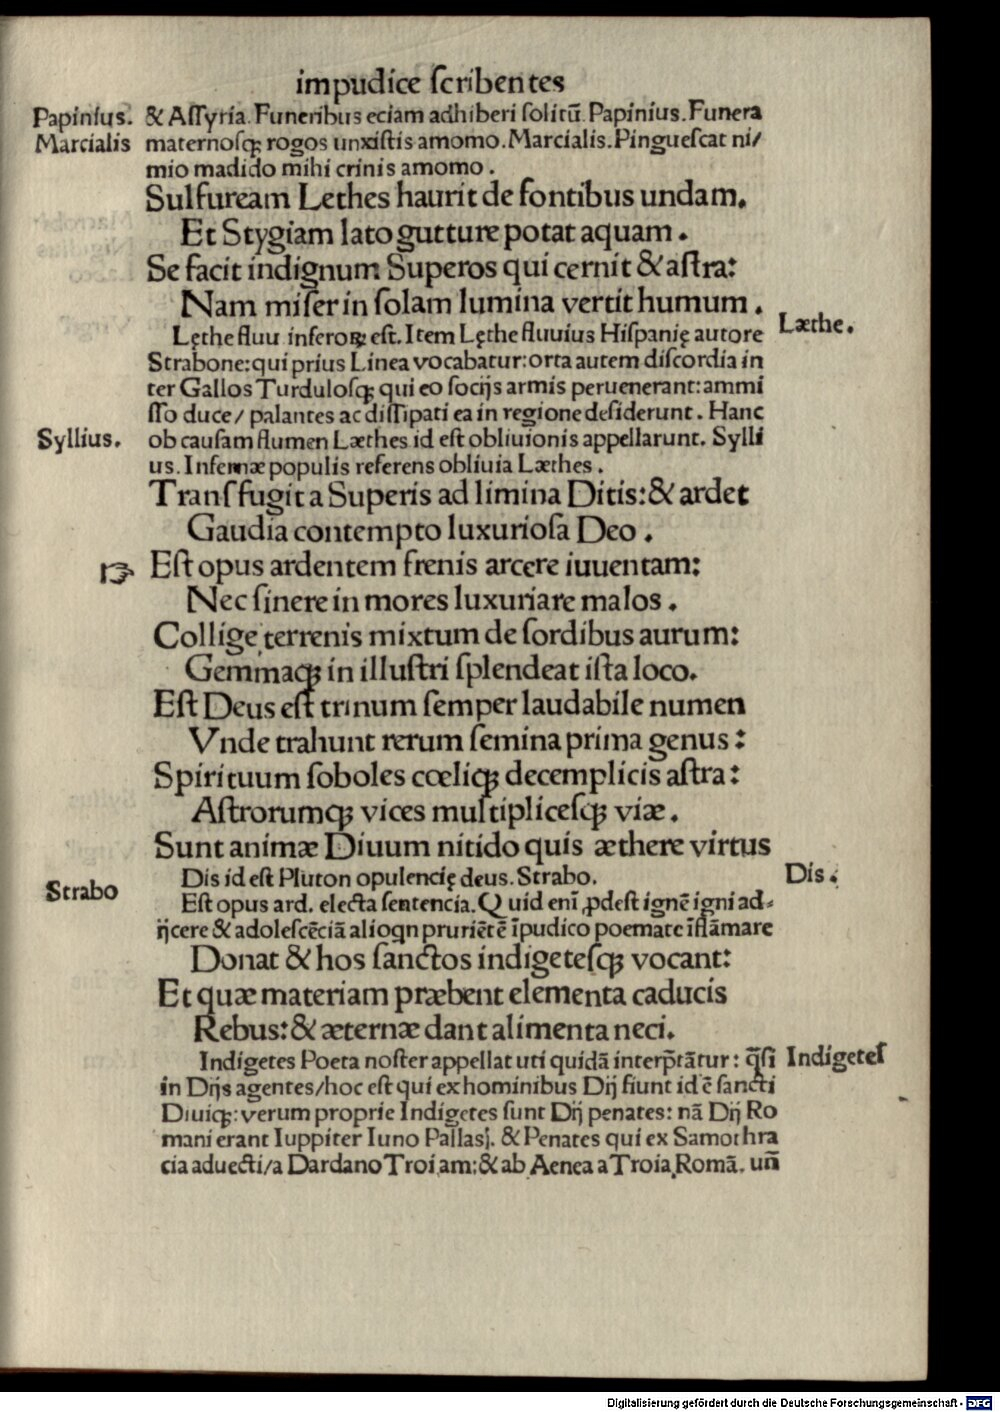 impudice ſcribentes
Papinius. & Aſſyria. Funeribus eciam adhiberi ſolitū. Papinius. Funera
Marcialis maternoſqꝫ rogos unxiſtis amomo. Marcialis. Pingueſcat ni/
mio madido mihi crinis amomo.
Sulfuream Lethes haurit de fontibus undam.
Et Stygiam lato gutture potat aquam.
Se facit indignum Superos qui cernit & aſtra:
Nam miſer in ſolam lumina vertit humum.
Lęthe fluu inferoꝝ eſt. Item Lęthe fluuius Hiſpanię autore Læthe.
Strabone: qui prius Linea vocabatur: orta autem diſcordia in
ter Gallos Turduloſqꝫ qui eo ſocijs armis peruenerant: ammi
ſſo duce/ palantes ac diſſipati ea in regione deſiderunt. Hanc
Syllius. ob cauſam flumen Læthes id eſt obliuionis appellarunt. Sylli
us. Infernæ populis referens obliuia Læthes.
Tranſfugit a Superis ad limina Ditis: & ardet
Gaudia contempto luxurioſa Deo.
☞ Eſt opus ardentem frenis arcere iuuentam:
Nec ſinere in mores luxuriare malos.
Collige terrenis mixtum de ſordibus aurum:
Gemmaqꝫ in illuſtri ſplendeat iſta loco.
Eſt Deus eſt trinum ſemper laudabile numen
Vnde trahunt rerum ſemina prima genus:
Spirituum ſoboles cœliqꝫ decemplicis aſtra:
Aſtrorumqꝫ vices multipliceſqꝫ viæ.
Sunt animæ Diuum nitido quis æthere virtus
Dis id eſt Pluton opulencię deus. Strabo. Dis.
Strabo Eſt opus ard. electa ſentencia. Quid enī ꝓdeſt ignē igni ad⸗
ijcere & adoleſcēciā alioqn pruriētē īpudico poemate īflāmare
Donat & hos ſanctos indigeteſqꝫ vocant:
Et quæ materiam præbent elementa caducis
Rebus: & æternæ dant alimenta neci.
Indigetes Poeta noſter appellat uti quidā interp̄tātur: q̄ſi Indigeteſ
in Dijs agentes/ hoc eſt qui ex hominibus Dij fiunt id ē ſancti
Diuiqꝫ: verum proprie Indigetes ſunt Dij penates: nā Dij Ro
mani erant Iuppiter Iuno Pallasſ. & Penates qui ex Samothra
cia aduecti/ a Dardano Troiam: & ab Aenea a Troia Romā. un̄
Digitalisierung gefördert durch die Deutsche Forschungsgemeinschaft - DFG